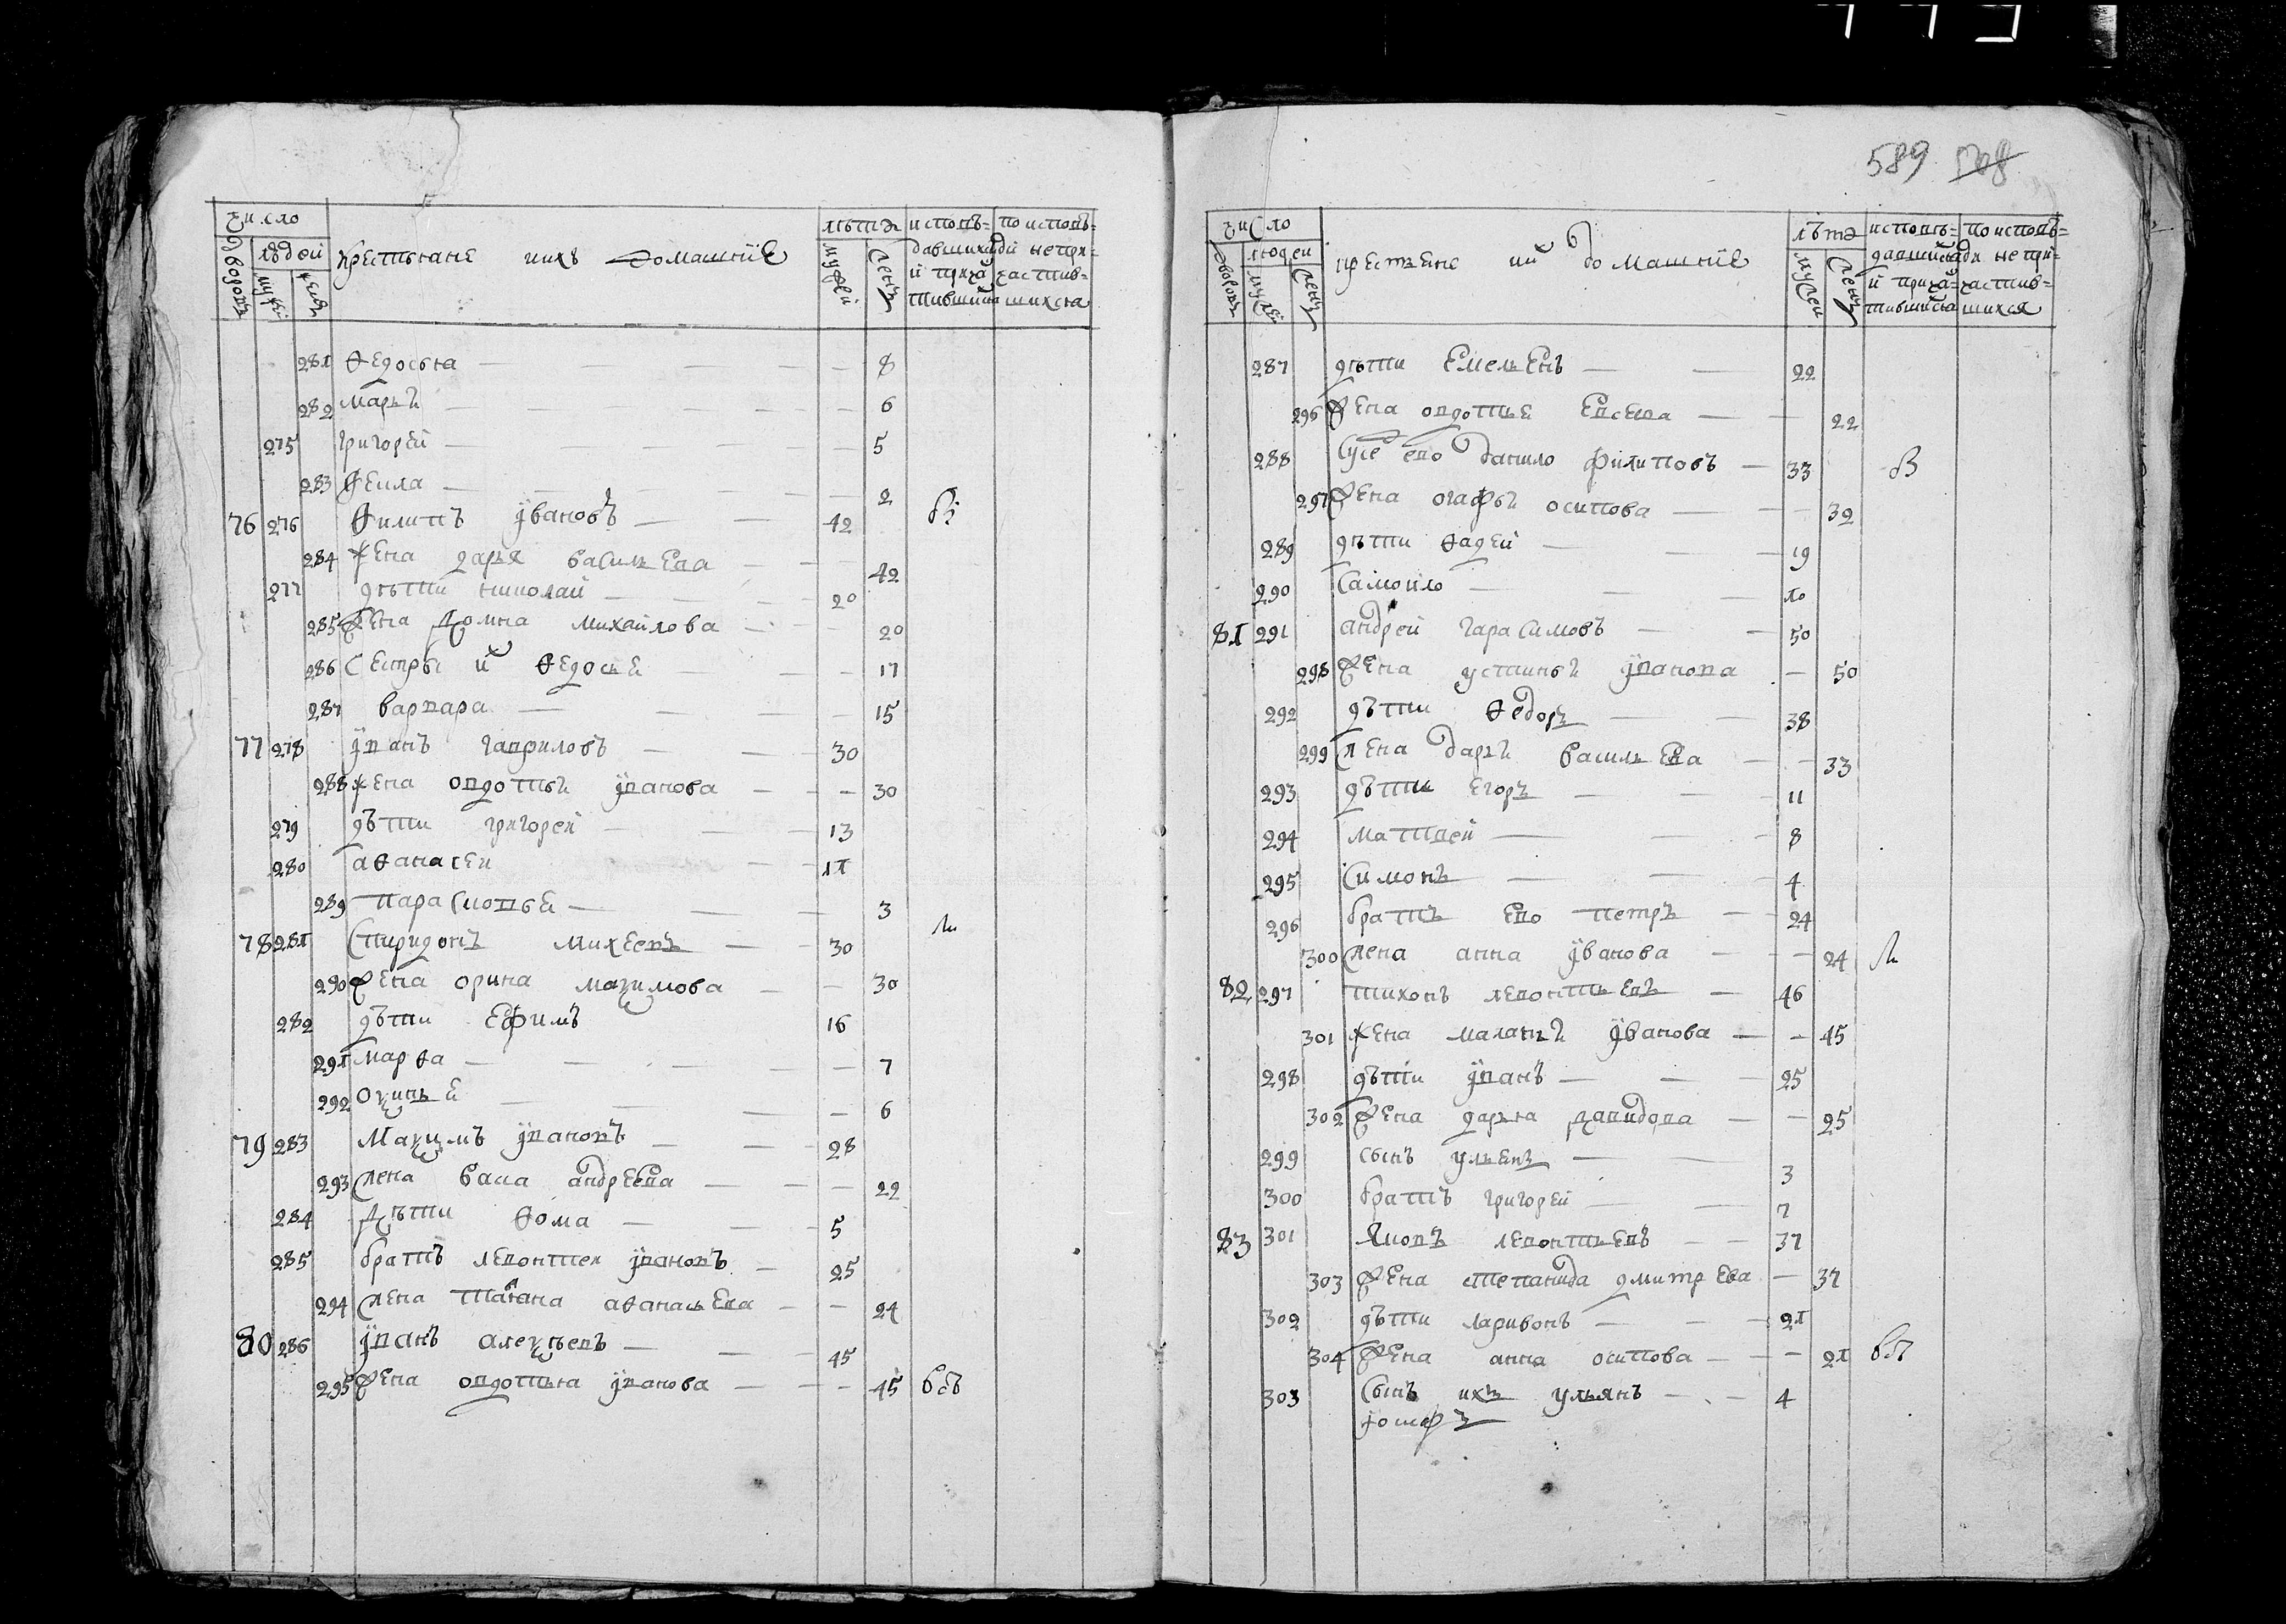 589 508
число
лѣтъ исповѣ= по исповѣ=
дворовъ
людей
муже
женъ
крестьяне ихъ домашніе
мужей
женъ
давшихся и прича= стившихся
ди не при= частив= шихся
281 Ѳедосья — 8
282 марьѣ — 6
275 григорей — 5
283 Ѳекла — 2
76 276 Ѳилипъ Ӱвановъ — 42
284 жена дарья василева — 42
277 дѣти николай — 20
285 жена домна михайлова — 20
286 сестры их Ѳедосьѣ — 17
287 варвара — 15
77 278 Ӱванъ гавриловъ — 30
288 жена овдотьѣ Ӱванова — 30
279 дѣти григорей — 13
280 аѲанасеи — 11
289 парасковьѣ — 3
78 281 Спиридонъ михеевъ — 30
290 жена орина маѯимова — 30
282 дѣти Ефимъ 16
291 марѲа — 7
292 оѯиньѣ — 6
79 283 Маѯимъ Ӱвановъ — 28
293 жена васа андреева — 22
284 дѣти Ѳома — 5
285 братъ левонтеи Ӱвановъ — 25
294 жена татьяна аѲанасьева — 24
80 286 Ӱванъ алеѯѣевъ — 45
295 жена овдотья Ӱванова — 45
число
дворовъ
людей
мужей
женъ
крестьяне их домашніе
лѣта
мужей
женъ
исповѣ= давшийся и прича= стившийся
по исповѣ= ди не при= частив= шихся
287 дѣти Емельянъ — 22
296 жена овдотье Евсева — 22
288 Сусе ево данило филиповъ — 33
297 жена огафьѣ осипова — 32
289 дѣти Ѳадей — 19
290 Самойло — 10
81 291 андрей гарасимовъ — 50
298 жена устиньѣ Ӱванова — 50
292 дѣти Ѳедоръ — 38
299 жена дарьѣ василева — 33
293 дѣти Егоръ — 11
294 матвей — 8
295 Симонъ — 4
296 братъ Ево петръ — 24
300 жена анна Ӱванова — 24
82 297 тихонъ левонтьевъ — 46
301 жена маланьѣ Ӱванова — 45
298 дѣти Ӱванъ — 25
302 жена дарья давидова — 25
299 сынъ ульянъ — 3
300 братъ григорей — 7
83 301 Яковъ левонтьевъ — 37
303 жена степанида дмитрева — 37
302 дѣти ларивонъ — 21
304 жена анна осипова — 21
303 сынъ ихъ ульянъ — 4